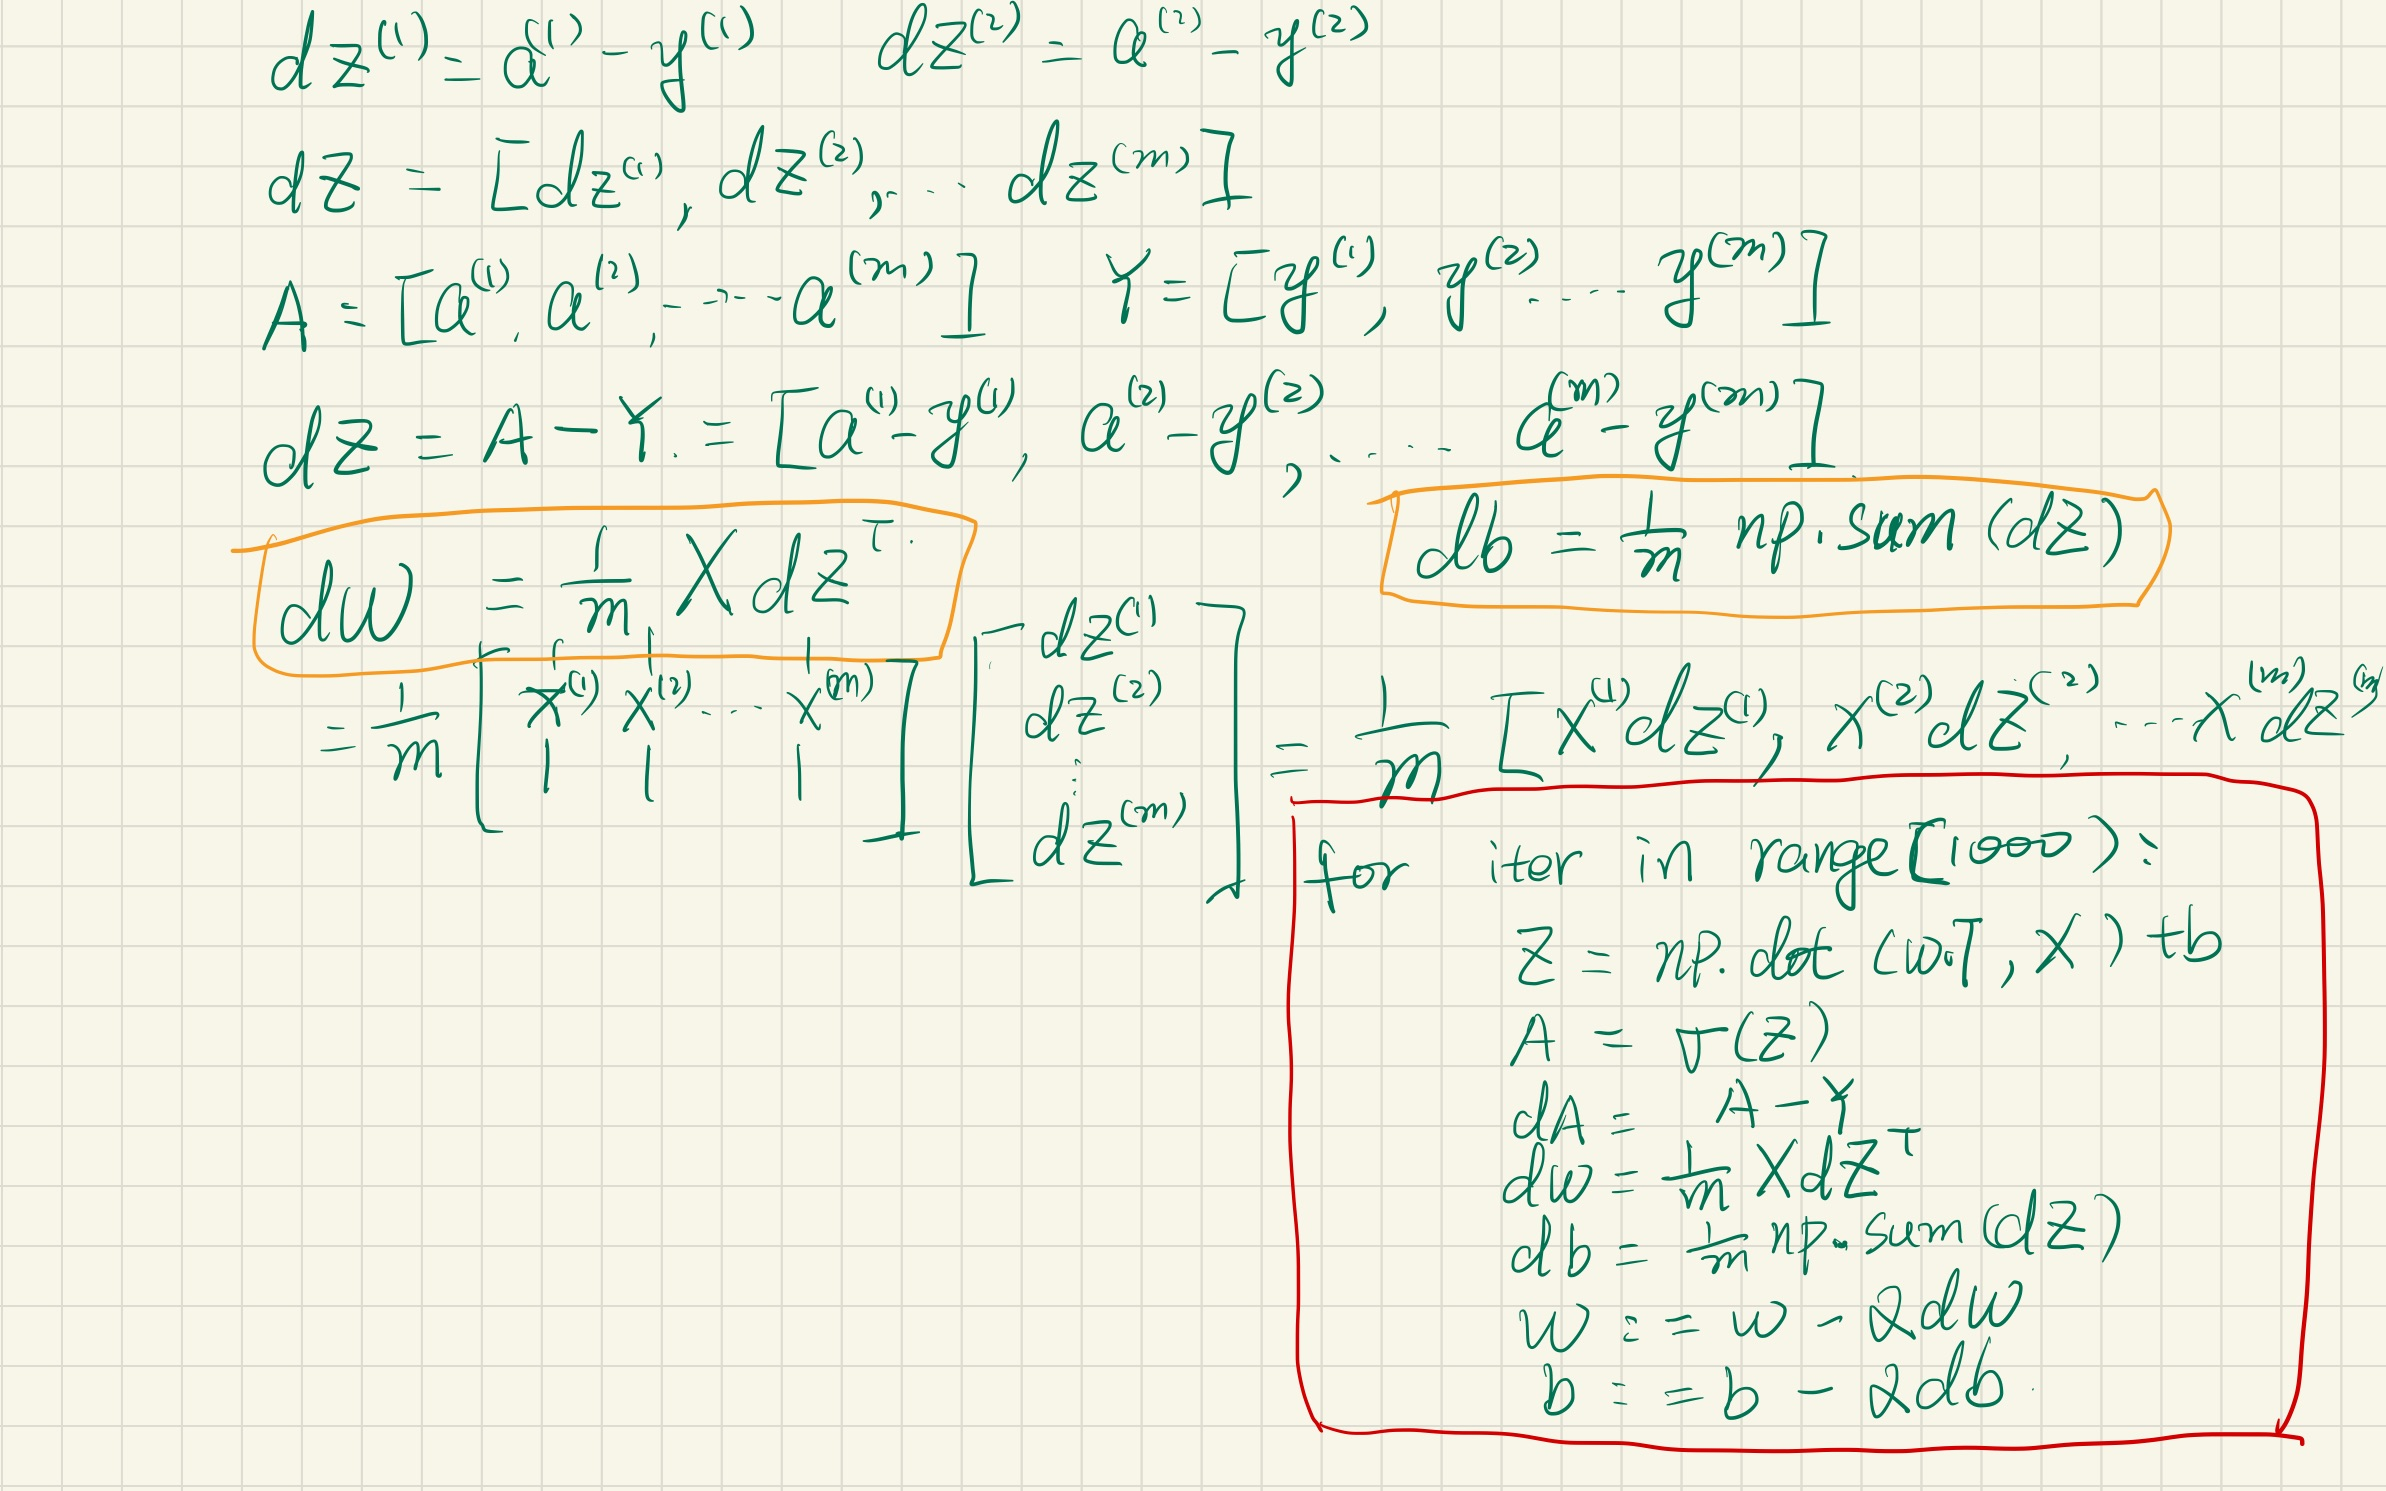 dz⁽¹⁾ = a⁽¹⁾ − y⁽¹⁾   dz⁽²⁾ = a⁽²⁾ − y⁽²⁾
dZ = [dz⁽¹⁾, dz⁽²⁾, ... dz⁽ᵐ⁾]
A = [a⁽¹⁾, a⁽²⁾, ..... a⁽ᵐ⁾]   Y = [y⁽¹⁾, y⁽²⁾ .... y⁽ᵐ⁾]
dZ = A − Y. = [a⁽¹⁾ − y⁽¹⁾, a⁽²⁾ − y⁽²⁾, .... a⁽ᵐ⁾ − y⁽ᵐ⁾]
dW = 1/m X dZᵀ.
db = 1/m np.sum (dZ)
= 1/m [x⁽¹⁾ x⁽²⁾ ... x⁽ᵐ⁾] [dz⁽¹⁾ dz⁽²⁾ ⋮ dz⁽ᵐ⁾] = 1/m [x⁽¹⁾dz⁽¹⁾, x⁽²⁾dz⁽²⁾, ... x⁽ᵐ⁾dz⁽ᵐ⁾
for iter in range(1000):
Z = np.dot (w.T, X) + b
A = σ(Z)
dA = A − Y
dw = 1/m X dZᵀ
db = 1/m np.sum (dZ)
w := w − αdw
b := b − αdb